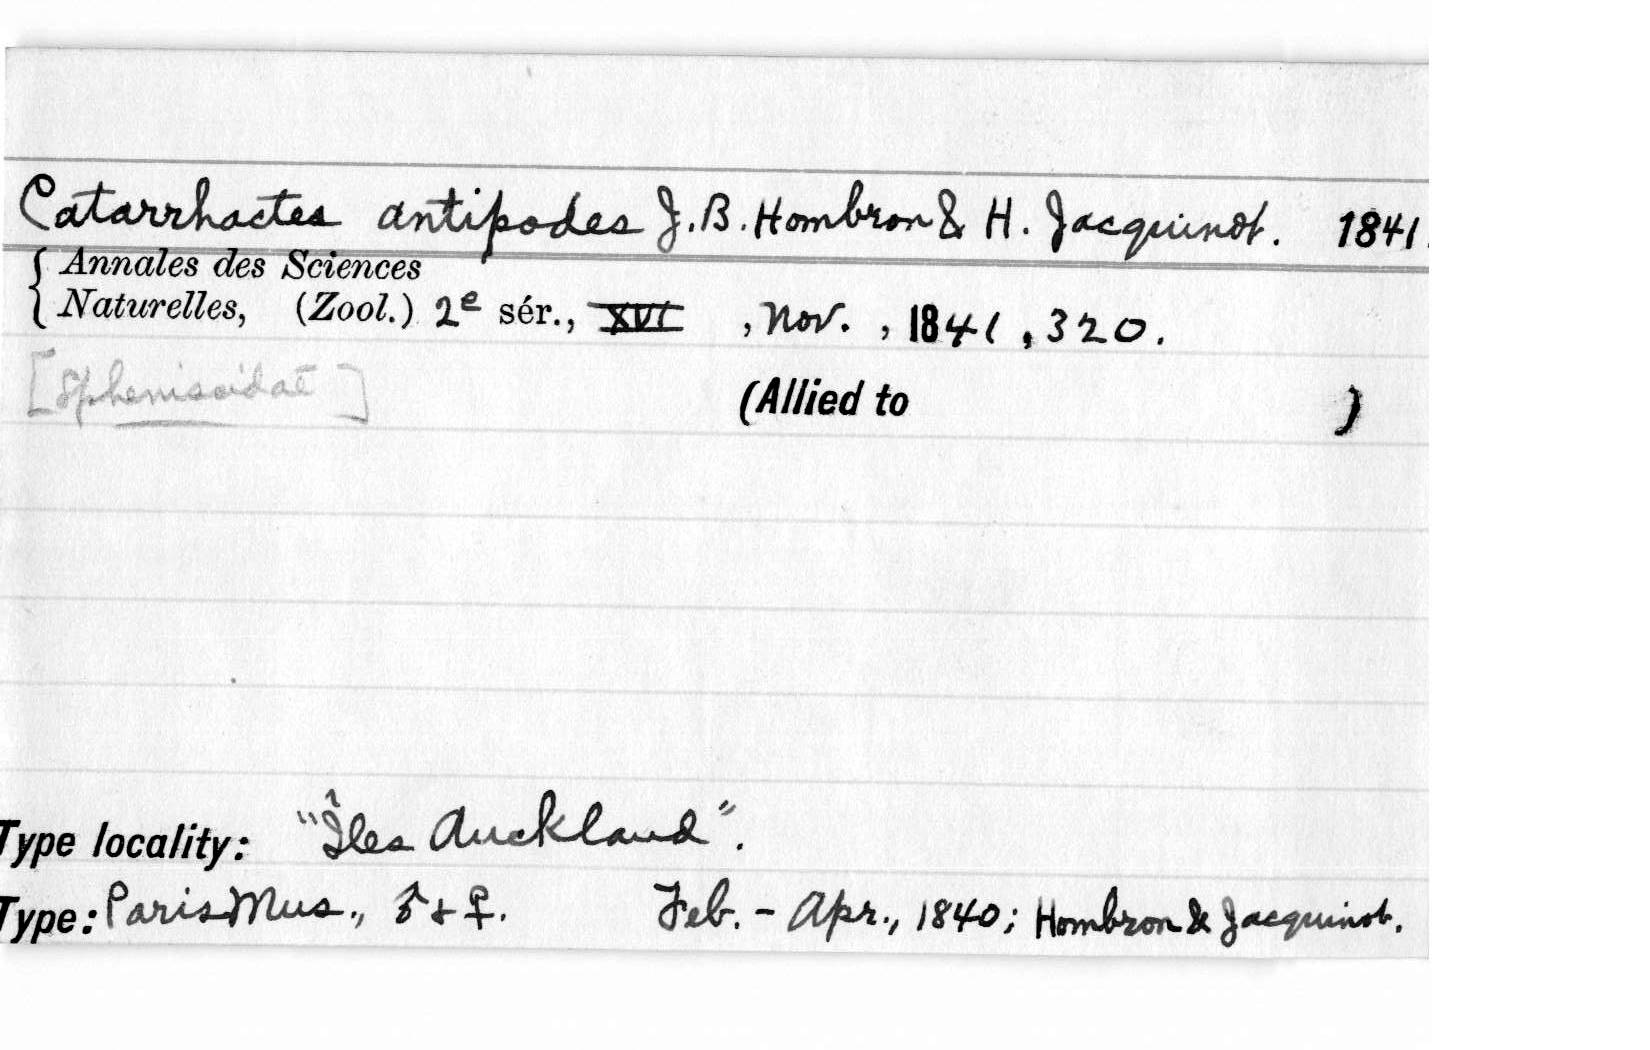 Catarrhactes antipodes J. B. Hombron & H. Jacquinot. 1841.
{ Annales des Sciences
Naturelles, (Zool.) 2e sér., XVI , Nov. , 1841 , 320.
[Spheniscidae]
(Allied to )
Type locality: "Îles Auckland".
Type: Paris Mus., ♂ + ♀. Feb. - Apr., 1840; Hombron & Jacquinot.